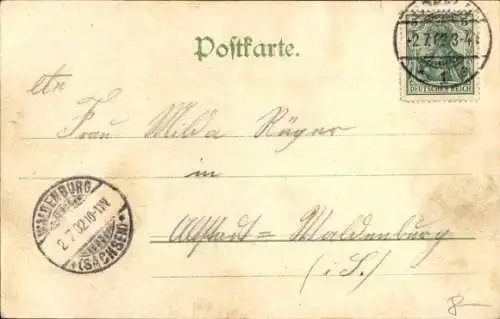 Postkarte.
5 5
2.7.02.3-4
* 1 g
DEUTSCHES REICH
Frau Milda Rüger
in
Altstadt=Waldenburg
(i/S.)
WALDENBURG
2.7.02.10-11N
*(SACHSEN)*